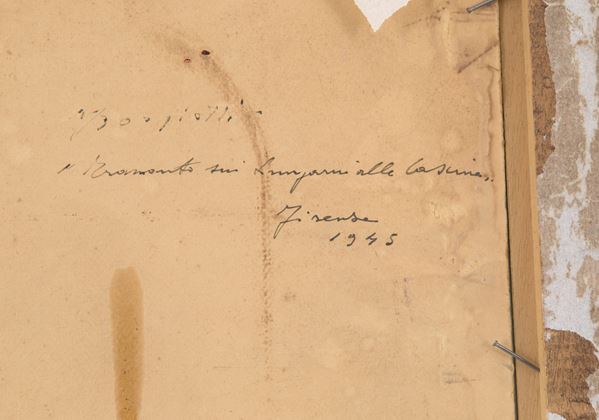 "Tramonto sui Lungarni alle Cascine"
Firenze
1945